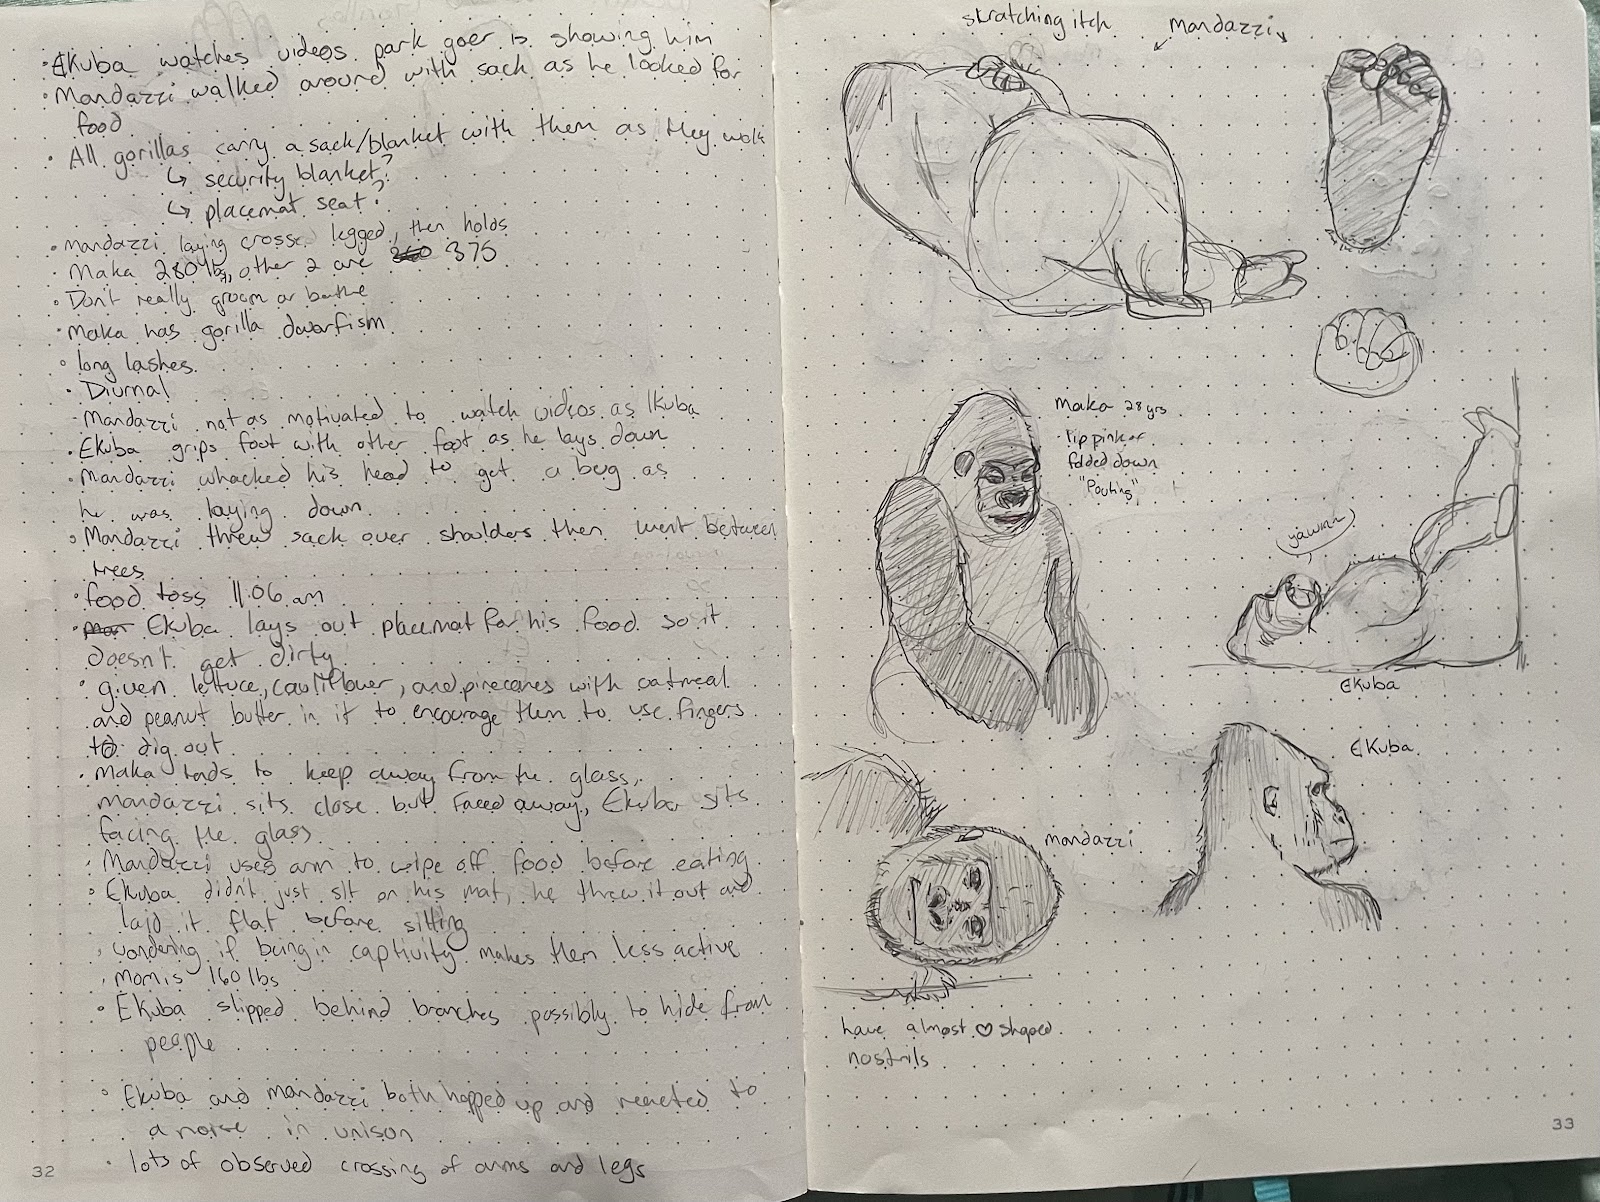 • Ekuba watches videos park goer is showing him
• Mandazzi walked around with sack as he looked for
food
• All gorillas carry a sack/blanket with them as they walk
↳ security blanket?
↳ placemat seat?
• mandazzi laying crosse legged, then holds
• Maka 280 lbs, other 2 are 375
• Don't really groom or bathe
• Maka has gorilla dwarfism
• long lashes
• Diurnal
• Mandazzi not as motivated to watch videos as Ikuba
• Ekuba grips foot with other foot as he lays down
• Mandazzi whacked his head to get a bug as
he was laying down
• Mandazzi threw sack over shoulders then went between
trees
• food toss 11:06 am
• Ekuba lays out placemat for his food so it
doesn't get dirty
• given lettuce, cauliflower, and pinecones with oatmeal
and peanut butter in it to encourage them to use fingers
to dig out
• Maka tends to keep away from the glass,
mandazzi sits close but faced away, Ekuba sits
facing the glass
• Mandazzi uses arm to wipe off food before eating
• Ekuba didn't just sit on his mat, he threw it out and
laid it flat before sitting
• wondering if being in captivity makes them less active
• mom is 160 lbs
• Ekuba slipped behind branches possibly to hide from
people
• Ekuba and mandazzi both hopped up and reacted to
a noise in unison
• lots of observed crossing of arms and legs
32
skratching itch
mandazzi
Maka 28 yrs
• lip pinker
folded down
"Pouting"
yawnn
Ekuba
Ekuba
mandazzi
have almost ♡ shaped
nostrils
33